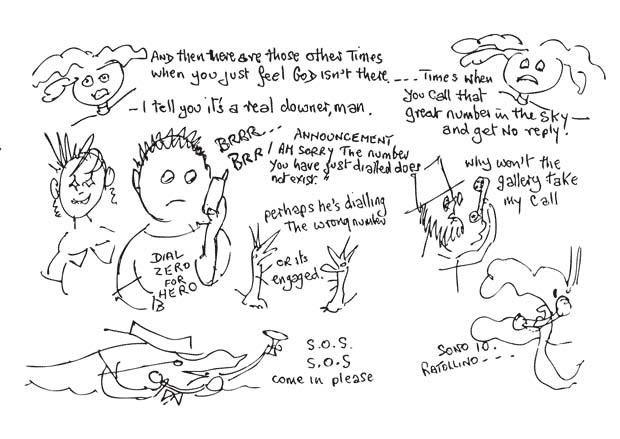 And then there are those other Times
when you just feel GOD isn't there ----
- I tell you it's a real downer, man.
Times when
you call that
great number in the sky -
and get no reply!
BRRR...
BRR!
ANNOUNCEMENT
I AM SORRY The number
you have just dialled does
not exist."
why won't the
gallery take
my call
perhaps he's dialling
The wrong number
OR it's
engaged.
DIAL
ZERO
FOR
HERO
S.O.S.
S.O.S
come in please
SONO IO.
RATOLLINO ----